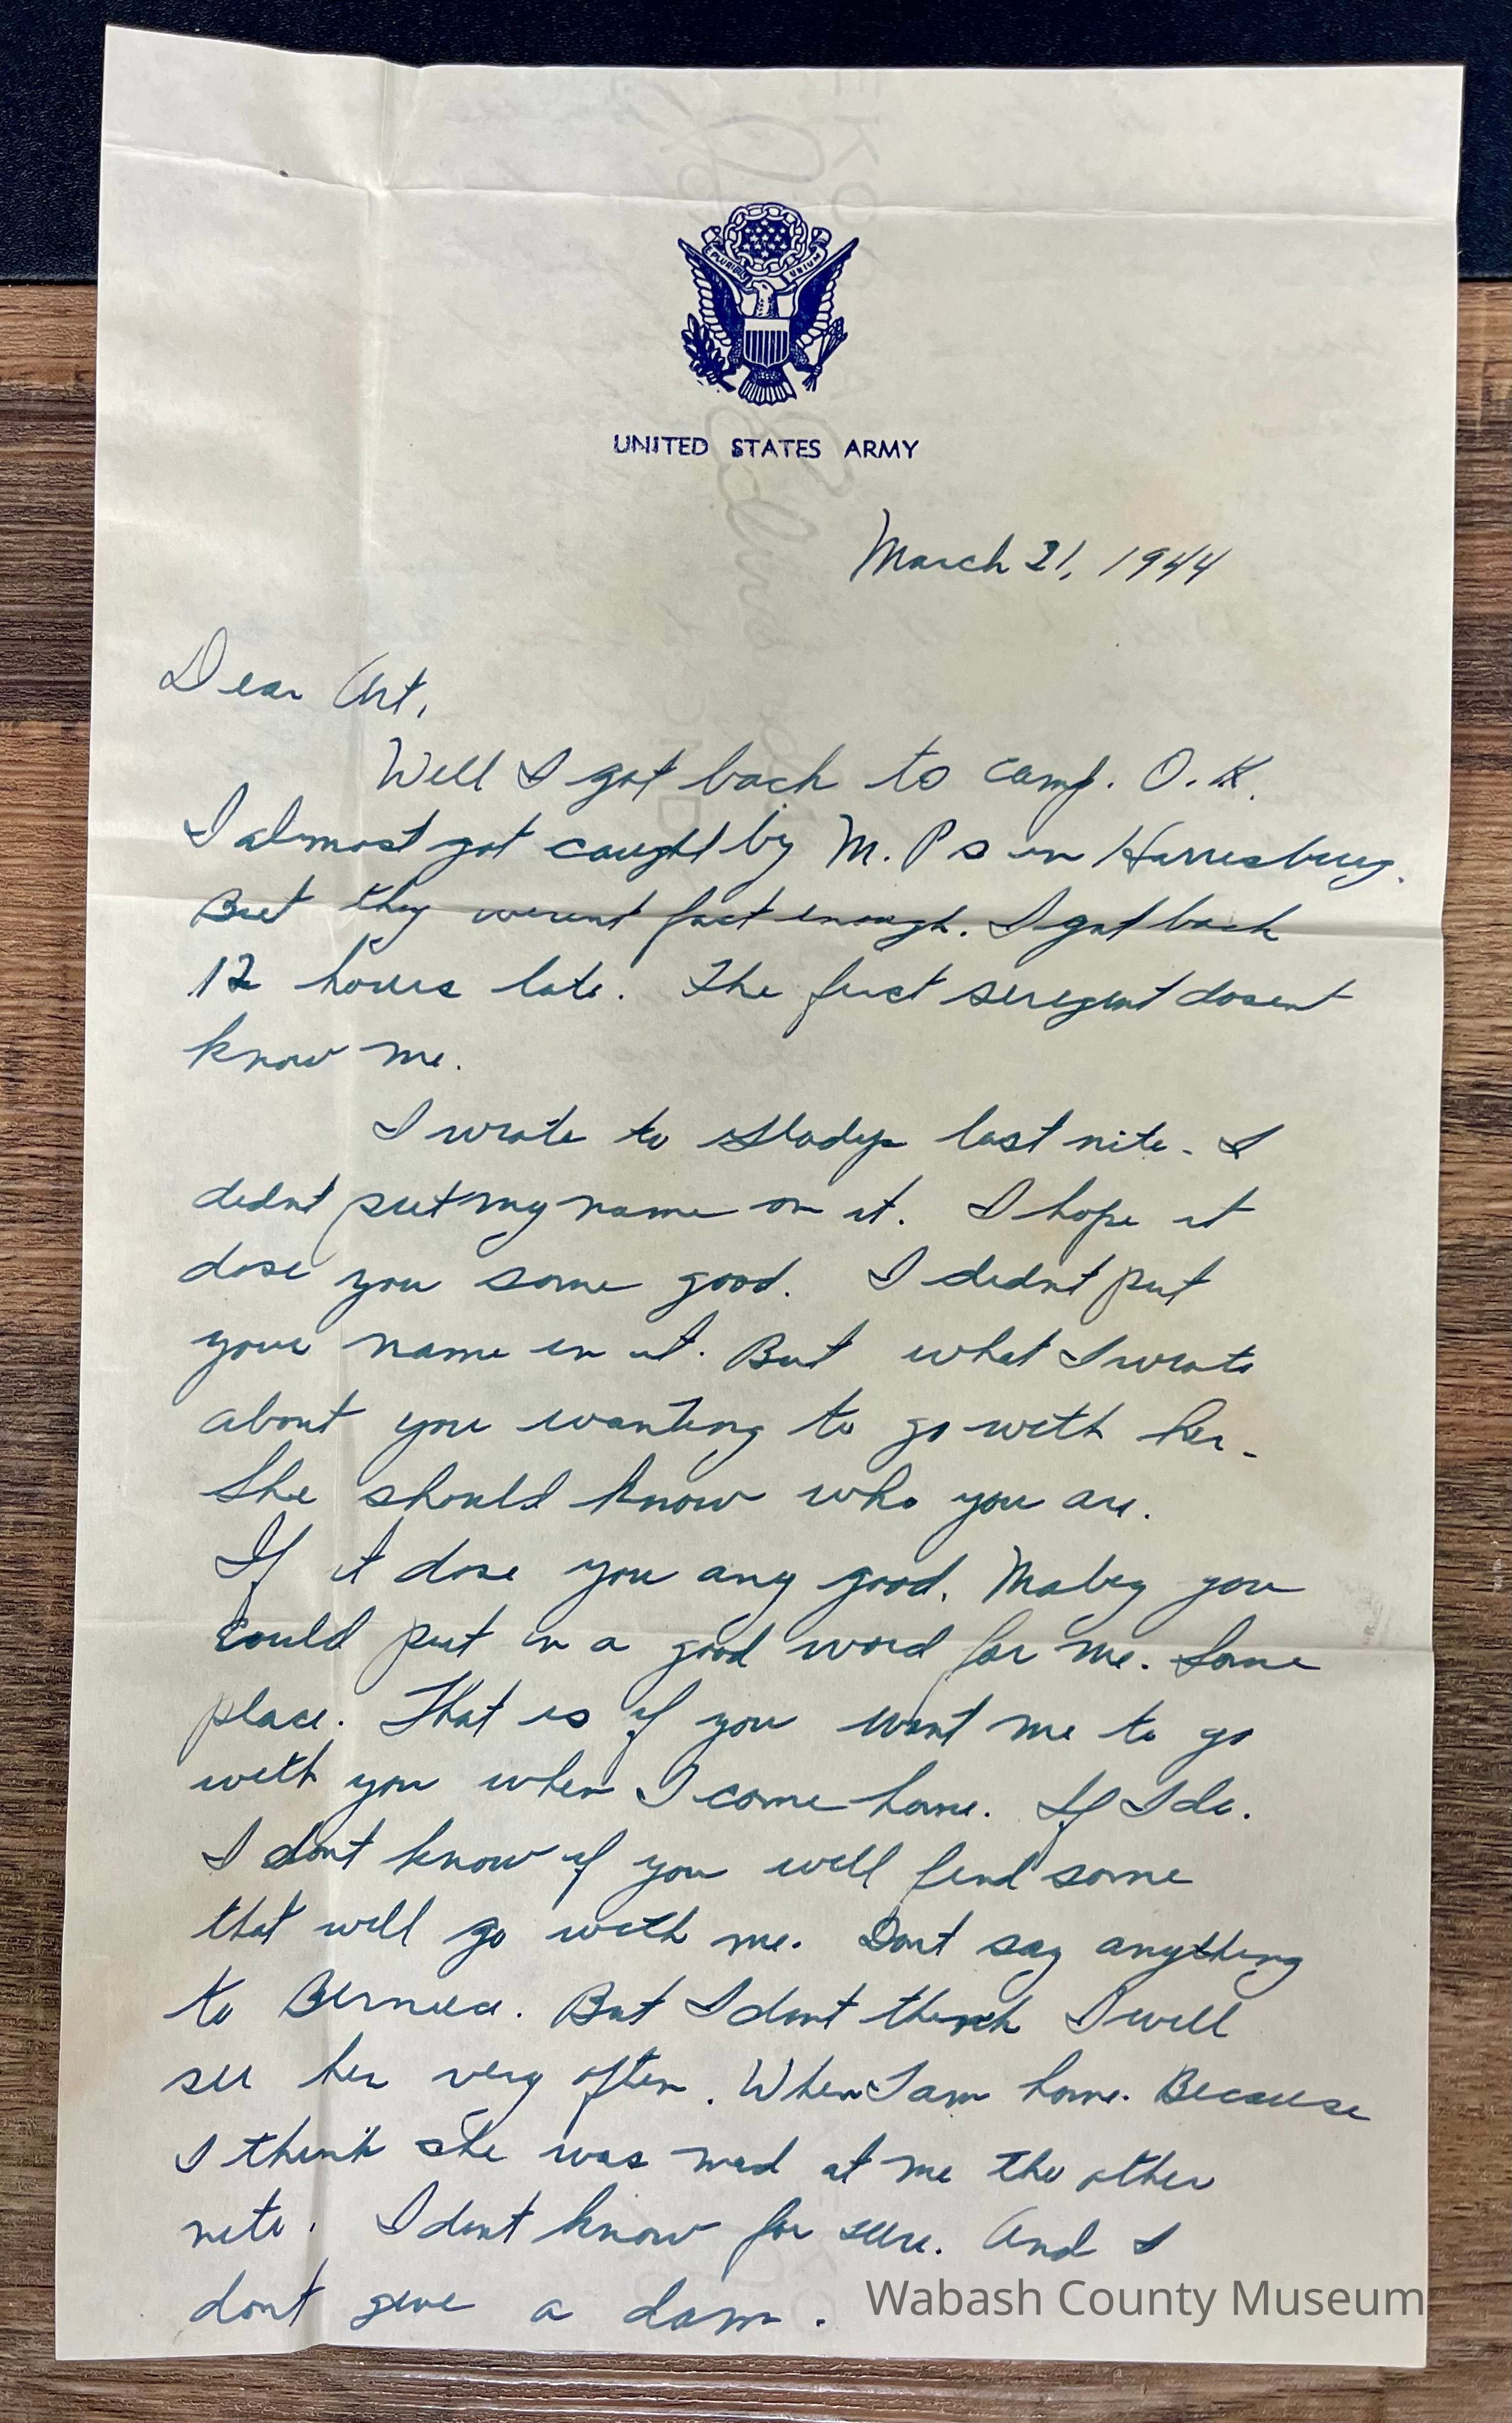 E PLURIBUS UNUM
UNITED STATES ARMY
March 21, 1944
Dear Art,
Well I got back to camp. O.K.
I almost got caught by M.P s in Harresburg.
But they werent fast enough. I got back
12 hours late. The first seregent dosent
know me.
I wrote to Gladys last nite. I
didnt put my name on it. I hope it
dose you some good. I didnt put
your name in it. But what I wrote
about you wanting to go with her.
She should know who you are.
If it dose you any good. Mabey you
could put in a good word for me. Some
place. That is if you want me to go
with you when I come home. If I do.
I dont know if you will find some
that will go with me. Dont say anything
to Berneice. But I dont think I will
see her very often. When I am home. Because
I think she was mad at me the other
nite. I dont know for sure. And I
dont give a dam.
Wabash County Museum